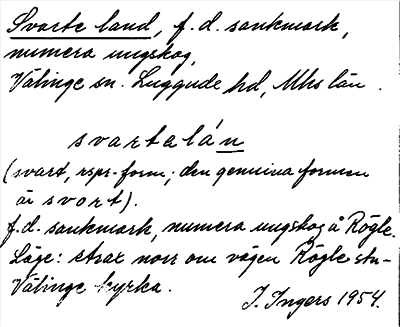 Svarte land, f.d. sankmark,
numera ungskog,
Välinge sn. Luggude hd, Mhs län.
svartelán
(svart, rspr-form; den genuina formen
är svort).
f.d. sankmark, numera ungskog å Rögle.
Läge: strax norr om vägen Rögle stn-
Välinge kyrka.
I. Ingers 1954.